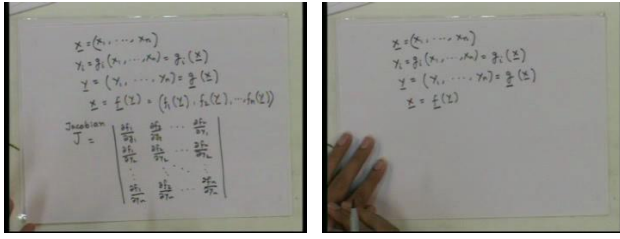 x = (x₁, ..., xₙ)
yᵢ = gᵢ(x₁, ..., xₙ) = gᵢ(x)
y = (y₁, ..., yₙ) = g(x)
x = f(y) = (f₁(y), f₂(y), ..., fₙ(y))
Jacobian
J = | ∂f₁/∂y₁ ∂f₂/∂y₁ ... ∂fₙ/∂y₁ |
| ∂f₁/∂y₂ ∂f₂/∂y₂ ... ∂fₙ/∂y₂ |
| ⋮ ⋮ ⋱ ⋮ |
| ∂f₁/∂yₙ ∂f₂/∂yₙ ... ∂fₙ/∂yₙ |
x = (x₁, ..., xₙ)
yᵢ = gᵢ(x₁, ..., xₙ) = gᵢ(x)
y = (y₁, ..., yₙ) = g(x)
x = f(y)